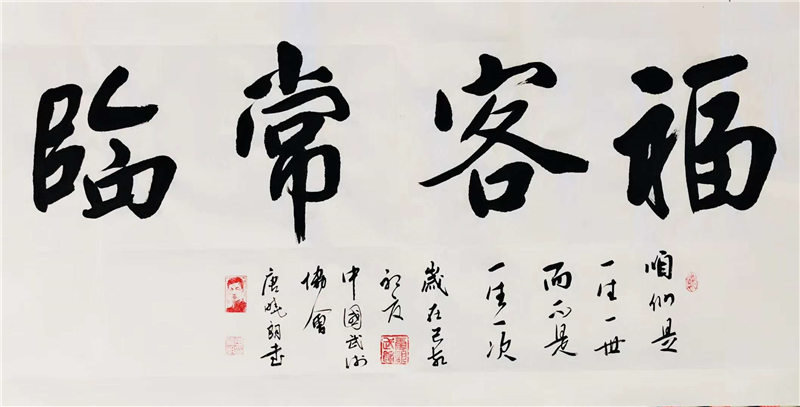 福客常臨
咱们是
一生一世
而不是
一生一次
歲在己亥
初夏
中國武術
協會
唐晓書